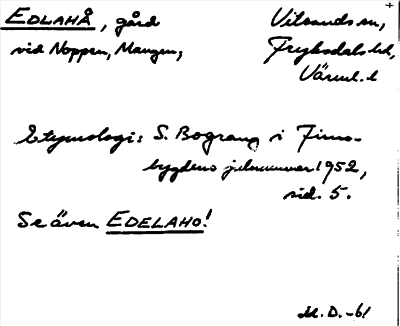 EDLAHÅ, gård
vid Noppen, Mangen,
Vitsands sn,
Fryksdals hd,
Värml. l
Etymologi: S. Bograng i Finn-
bygdens julnummer 1952,
sid. 5.
Se även EDELAHO!
M.D. -61